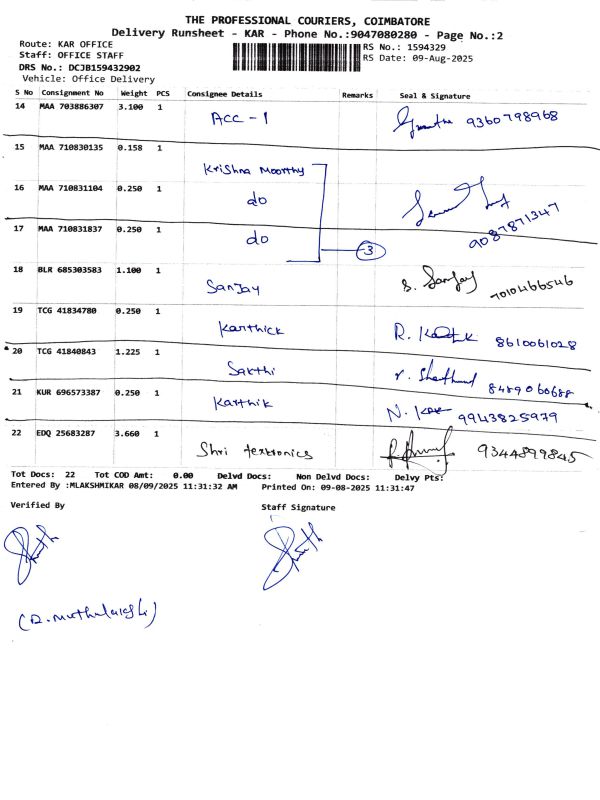 THE PROFESSIONAL COURIERS, COIMBATORE
Delivery Runsheet - KAR - Phone No.:9047080280 - Page No.:2
Route: KAR OFFICE
RS No.: 1594329
Staff: OFFICE STAFF
RS Date: 09-Aug-2025
DRS No.: DCJB159432902
Vehicle: Office Delivery
S No Consignment No Weight PCS Consignee Details Remarks Seal & Signature
14 MAA 703886307 3.100 1 ACC - 1 9360798968
15 MAA 710830135 0.158 1 Krishna Moorthy
16 MAA 710831104 0.250 1 do
17 MAA 710831837 0.250 1 do 3 9087871347
18 BLR 685303583 1.100 1 Sanjay S. Sanjay 7010466546
19 TCG 41834780 0.250 1 Karthick R. 8610061028
20 TCG 41840843 1.225 1 Sakthi 8489060688
21 KUR 696573387 0.250 1 Karthik N. 9943825979
22 EDQ 25683287 3.660 1 Shri textronics 9344899845
Tot Docs: 22 Tot COD Amt: 0.00 Delvd Docs: Non Delvd Docs: Delvy Pts:
Entered By :MLAKSHMIKAR 08/09/2025 11:31:32 AM Printed On: 09-08-2025 11:31:47
Verified By
Staff Signature